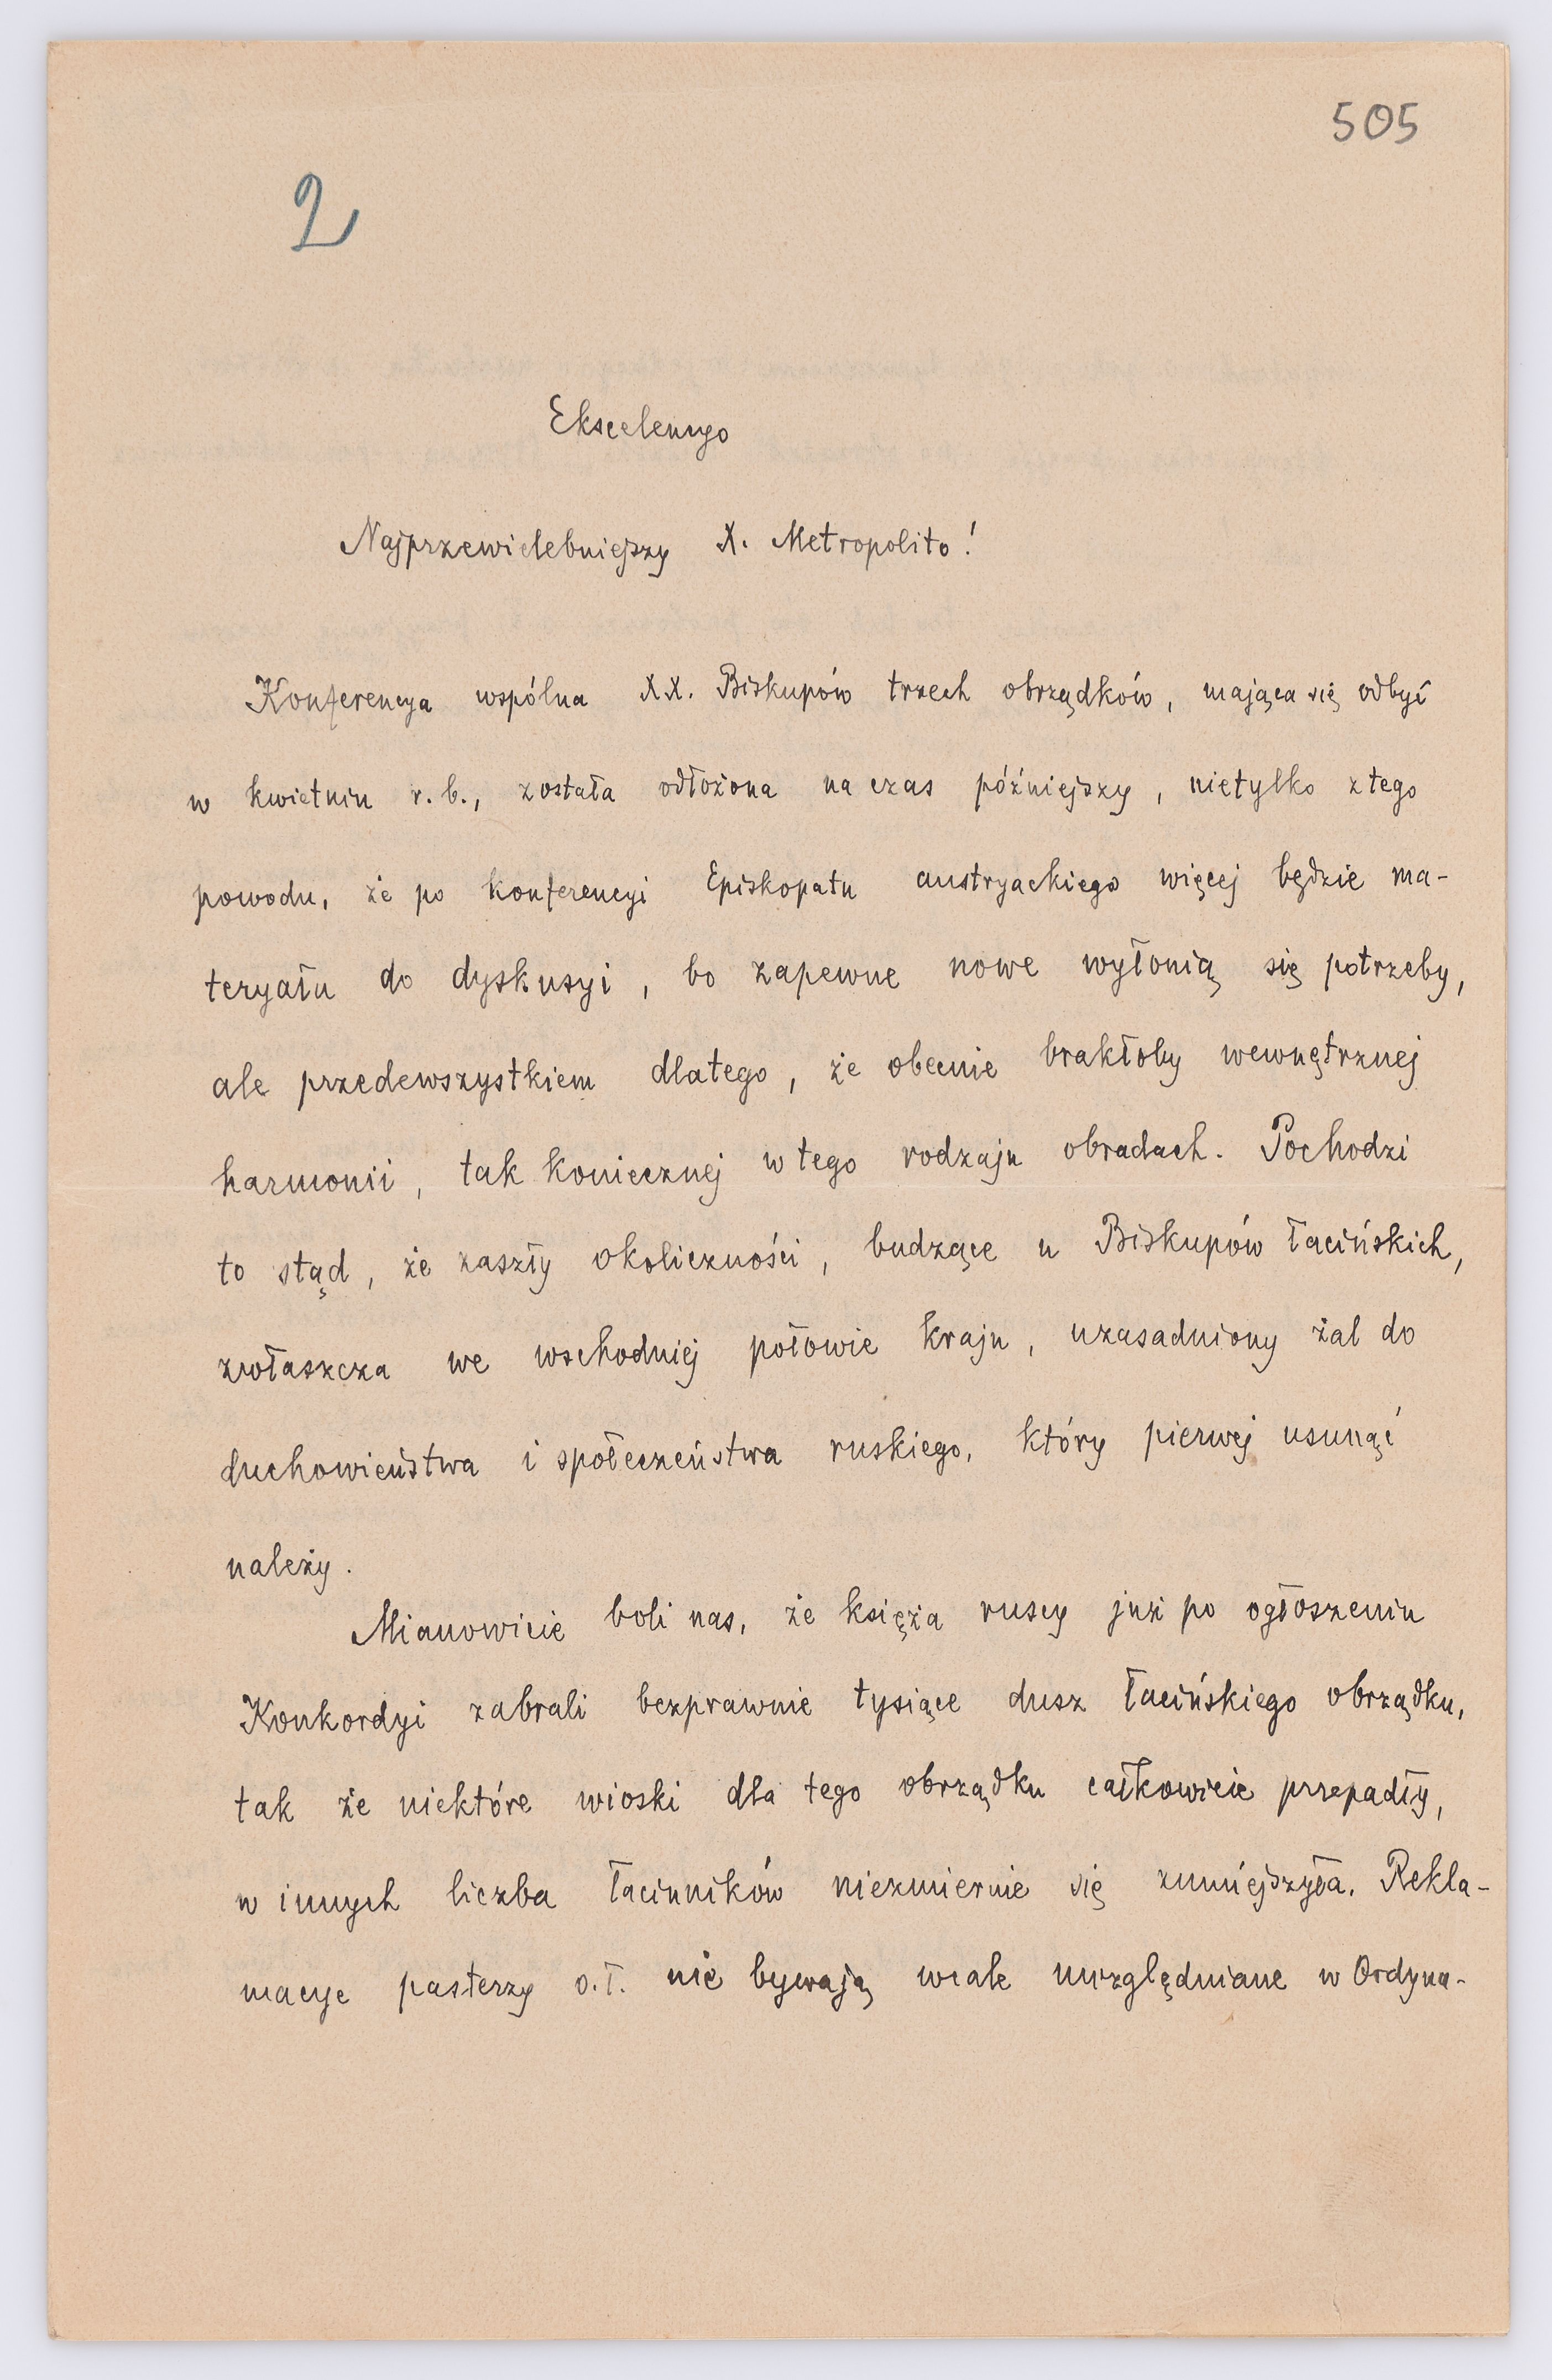 505
2
Ekscelencyo
Najprzewielebniejszy X. Metropolito!
Konferencya wspólna XX. Biskupów trzech obrządków, mająca się odbyć
w kwietniu r. b., została odłożona na czas późniejszy, nietylko z tego
powodu, że po konferencyi Episkopatu austryackiego więcej będzie ma-
teryału do dyskusyi, bo zapewne nowe wyłonią się potrzeby,
ale przedewszystkiem dlatego, że obecnie brakłoby wewnętrznej
harmonii, tak koniecznej w tego rodzaju obradach. Pochodzi
to stąd, że zaszły okoliczności, budzące u Biskupów łacińskich,
zwłaszcza we wschodniej połowie kraju, uzasadniony żal do
duchowieństwa i społeczeństwa ruskiego, który pierwej usunąć
należy.
Mianowicie boli nas, że księża ruscy już po ogłoszeniu
Konkordyi zabrali bezprawnie tysiące dusz łacińskiego obrządku,
tak że niektóre wioski dla tego obrządku całkowicie przepadły,
w innych liczba łacinników niezmiernie się zmniejszyła. Rekla-
macye pasterzy o. ł. nie bywają wcale uwzględniane w Ordyna-